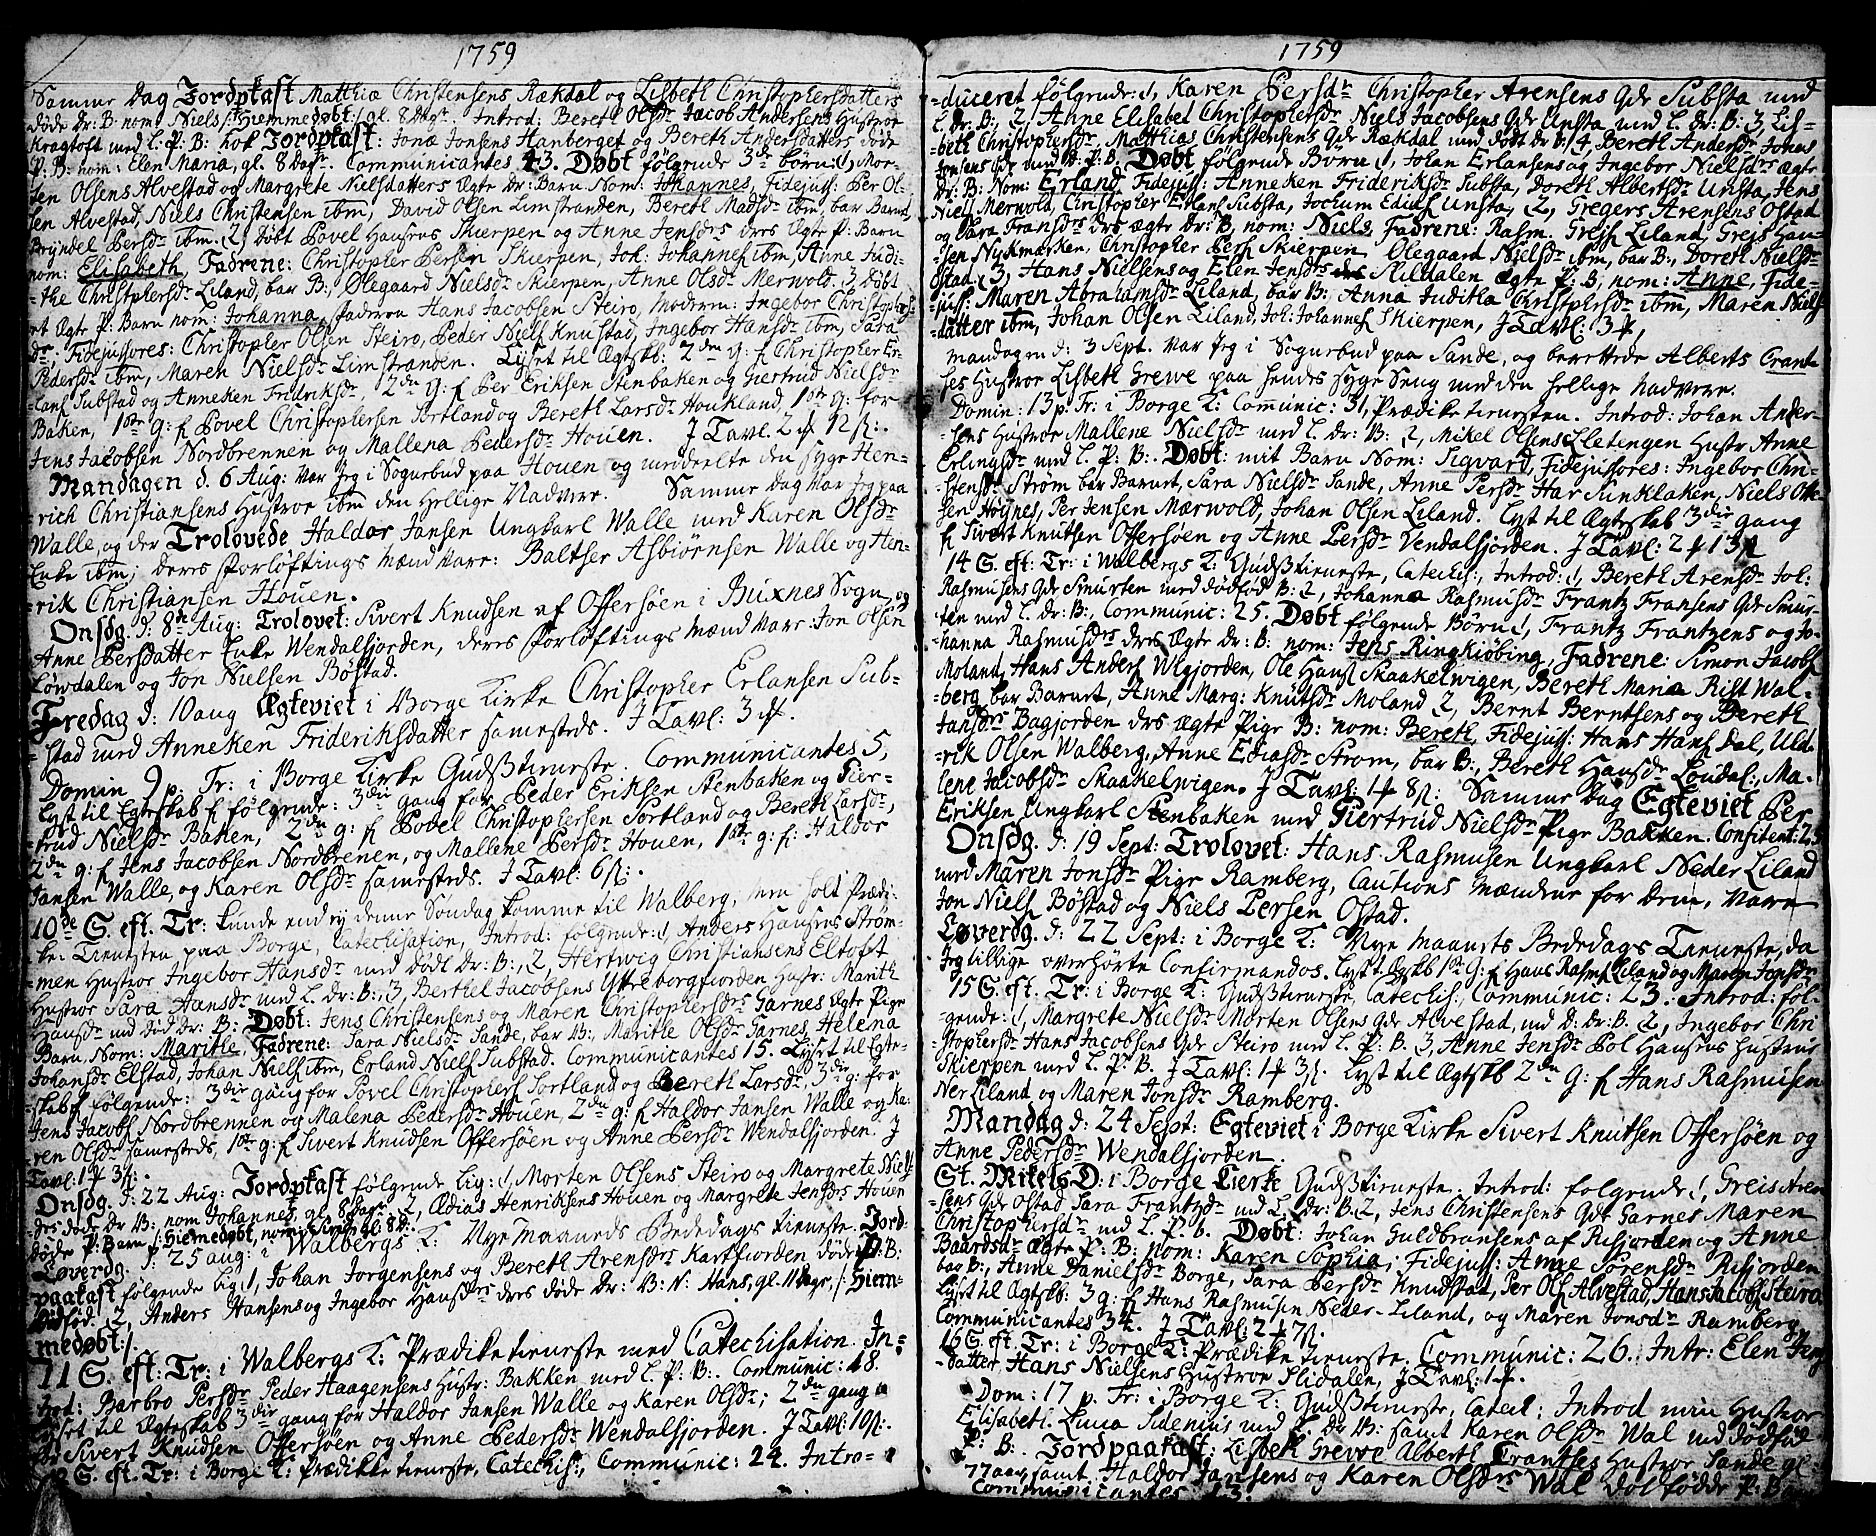 1759
Samme Dag Jordpkast Matthiæ Christensens Rækdal og Lisbeth Christophersdatters
døde Dr: B: nom: Niels /: Hiemmedøbt :/ gl. 8 dage. Introd: Bereth Olsdr Jacob Andersens Hustroe
Kragtoft med L. P: B: hok Jordpkast: Jonæ Jonsens Hanberget og Bereth Andersdatters døde
P: B: nom: Elen Maria, gl. 8 dage. Communicantes 43. Døbt følgende 3de børn: 1, Mor-
ten Olsens Alvestad og Margrete Nielsdatters Ægte Dr: Barn Nom: Johannes, Fidejuss: Per Ol-
sen Alvestad, Niels Christensen ibm, David Olsen Limstranden, Bereth Madsdr ibm, bar Barnet,
Bryndel Persdr ibm. 2, Døbt Povel Hansens Skierpen og Anne Jensdrs deres Ægte P: Barn
nom: Elisabeth, Fadrene: Christopher Persen Skierpen, Joh: Johannes ibm, Anne Judi-
-the Christophersdr Liland, bar B:, Ølegaard Nielsdr Skierpen, Anne Olsdr Merwold. 3 Døbt
et Ægte P: Barn nom: Johanna, Faderen Hans Jacobsen Steiro, Moderen: Ingebor Christophers-
dr. Fidejussores: Christopher Olsen Steiro, Peder Niels Knustad, Ingebor Hansdr ibm, Sara
Pedersdr ibm, Maren Nielsdr Limstranden. Lyset til Ægtskb: 2den g: f Christopher Er-
lans Substad og Anneken Fridriksdr, 2den g: f Per Eriksen Stenbaken og Giertrud Nielsdr
Baken, 1ste g: f Povel Christophersen Sortland og Bereth Larsdr Houkland, 1ste g: for
Jens Jacobsen Nordbrennen og Mallena Pedersdr Houen. J Tavl: 2 # 12 ß:
Mandagen d. 6 Aug: Var Jeg i Sognebud paa Houen og meddeelte den syge Hen-
rich Christiansens Hustroe ibm den Hellige Nadvere. Samme dag var Jeg paa
Walle, og der Trolovede Haldor Jansen Ungkarl Walle med Karen Olsdr
Enke ibm; deres Forløftings Mænd vare: Baltser Asbiørnsen Walle og Hen-
rik Christiansen Houen.
Onsdg. d: 8de Aug: Trolovet: Sivert Knudsen af Offersøen i Buxnes Sogn og
Anne Persdatter Enke Wendalsjorden, deres Forløftings Mænd vare: Jon Olsen
Løwdalen og Jon Nielsen Bøstad.
Fredag d: 10 aug Ægteviet i Borge Kirke Christopher Erlansen Sub-
stad med Anneken Frideriksdatter samesteds. J Tavl: 3 #.
Domin 9 p. Tr: i Borge Kirke Gudsztieneste. Communicantes 5,
Lyst til Egteskab f følgende: 3die gang for Peder Eriksen Stenbaken og Gier-
trud Nielsdr Baken, 2den g: f Povel Christophersen Sortland og Bereth Larsdr,
2den g: f Jens Jacobsen Nordbrenen, og Mallene Persdr Houen, 1ste g: f: Haldor
Jansen Walle, og Karen Olsdr samesteds. J Tavl: 6 ß:.
10de S. eft: Tr: kunde end ej denne Søndag komme til Walberg, men holt Prædi-
ke Tienesten paa Borge, Catechisation, Introd: følgende: 1, Anders Hansens Strøm-
men Hustroe Ingebor Hansdr med Dødf Dr: B:, 2, Hertwig Christiansens Eltoft
Hustroe Sara Hansdr med L. Dr: B:, 3, Berthel Jacobsens Yttreborgfiorden Hustr: Marith
Hansdr med død Dr: B: Døbt: Jens Christensens og Maren Christophersdrs Garnes Ægte Pige
Barn, Nom: Marithe, Fadrene: Sara Nielsdr Sande, bar B: Marithe Olsdr Garnes, Helena
Johansdr Elstad, Johan Niels ibm, Erland Niels Substad. Communicantes 15. Lyset til Egte-
skab f følgende: 3die gang for Povel Christophers Sortland og Bereth Larsdr, 3die g: for
Jens Jacobs Nordbrennen og Malena Pedersdr Houen, 2den g: f Haldor Jansen Walle og Ka-
ren Olsdr samesteds, 1ste g: f Sivert Knudsen Offersøen og Anne Persdr Wendalsjorden. J
Tavl: 1 # 3 ß:.
Onsdg: d: 22 Aug: Jordpkast følgende Lig: 1, Morten Olsens Steiro og Margrete Niels
drs døde Dr B: nom Johannes gl. 8 Dage. 2, Ædias Henriksens Houen og Margrete Jensdrs Houen
døde P: Barn /: Hiemedøbt, nom:
Løverdg. d: 25 aug: i Walbergs K: Nye Maaneds Bededags tieneste. Jord-
paakast følgende Lig: 1, Johan Jorgensens og Bereth Arensdrs Kartfiorden døde P: B:
Dødfød. 2, Anders Hansens og Ingebor Hansdrs deres døde Dr: B: N: Hans, gl. 11 dage, /: Hiem-
medøbt :/.
11 S. eft: Tr: i Walbergs K: Prædiketieneste med Catechisation. In-
trod: Barbro Persdr Peder Haagensens Hustr: Bakken med L. P: B:. Communic: 18.
Lyset til Ægteskab 3die gang for Haldor Jansen Walle og Karen Olsdr; 2den gang
for Sivert Knudsen Offersøen og Anne Pedersdr Wendalsjorden. J Tavl: 10 ß:
12 S. eft: Tr: i Borge K: Prædikke tieneste, Catechis:, Communic: 24. Intro-
1759
-duceret følgende: 1, Karen Persdr Christopher Arensens Qde Substa med
L. Dr: B: 2, Anne Elisabet Christophersdr Niels Jacobsens Qde Unsta med L. Dr: B: 3, Lis-
beth Christophersdr Matthias Christensens Qde Rækdal med dødt Dr b: 4 Bereth Andersdr Jonas
Jonsens Qde med D. P: B. Døbt følgende Børn 1, Johan Erlansens og Ingebor Nielsdrs Ægte
Dr: B: Nom: Erland Fidejuss: Anneken Frideriksdr Substa, Doreth Albertsdr Unsta, Jens
Niels Merwold, Christopher Erlans Substa, Jochum Ediæs Unsta, 2, Gregers Arensens Ostad
og Sara Fransdrs drs ægte Dr: B: nom: Niels, Fadrene: Rasm. Greis Liland, Greis Han-
sen Nykmarken, Christopher Pers Skierpen Ølegaard Nielsdr ibm, bar B:, Doreth Nielsdr
Ostad, 3, Hans Nielsens og Elen Jensdrs Slidalen Ægte P: B: nom: Anne, Fide-
juss: Maren Abrahamsdr Liland, bar B:, Anna Juditha Christophersdr ibm, Maren Niels
datter ibm, Johan Olsen Liland, Joh: Johannes Skierpen, J Tavl: 3 #,
Mandagen d: 3 Sept. var Jeg i Sognebud paa Sande, og berettede Alberts Crant-
ses Hustroe Lisbeth Grewe paa hendes syge Seng med den hellige Nadvere.
Domin: 13 p. Tr: i Borge K: Communic: 31, Prædiketienesten. Introd: Johan Ander-
sens Hustroe Mallene Nielsdr med L. Dr: B: 2, Mikel Olsens Lletingen Hustr Anne
Erlingsdr med L. P: B:. Døbt: mit Barn Nom: Sigvard, Fidejussores: Ingebor Chri-
stensdr Strøm bar Barnet, Sara Nielsdr Sande, Anne Persdr Har Sunklaken, Niels Ol-
sen Høynes, Per Jensen Mærwold, Johan Olsen Liland. Lyst til Ægteskab 3die gang
f Sivert Knutsen Offersøen og Anne Persdr Vendalsjorden. J Tavl: 2 # 13 ß
14 S. eft: Tr: i Walbergs K: Gudsztieneste, Catechis:, Introd: 1, Bereth Arensdr Joh:
Rasmusens Qde Smurten med dødfød B: 2, Johanna Rasmusdr Frantz Fransens Qde Smur-
ten med L. Dr: B:, Communic: 25. Døbt følgende Børn 1, Frantz Frantzens og Jo-
hanna Rasmusdrs drs Ægte Dr: B: nom: Jens Ringkiøbing, Fadrene: Simon Jacobs
Moland, Hans Anders Wlgjorden, Ole Hans Skaakelwigen, Bereth Maria Rist Wal-
berg bar Barnet, Anne Marg: Knutsdr Moland 2, Bernt Berntsens og Bereth
Jansdrs Bagjorden drs ægte Pige B: nom: Bereth, Fidejuss: Hans Hans Dal, Uld-
rik Olsen Walberg, Anne Ediasdr Strøm, bar B:, Bereth Hansdr Loudal:, Ma-
lene Jacobsdr Skaakelwigen. J Tavl: 1 # 8 ß: Samme Dag Egteviet Per
Eriksen Ungkarl Stenbaken med Giertrud Nielsdr Pige Bakken. Confitent: 25
Onsdg. d: 19 Sept: Trolovet: Hans Rasmusen Ungkarl Neder Liland
med Maren Jonsdr Pige Ramberg, Cautions Mændene for dem, Vare
Jon Niels Bøstad og Niels Persen Ostad.
Løverdg. d: 22 Sept: i Borge K: Nye Maanets Bededags Tieneste, da
Jeg tillige overhørte Confirmandos. Lyst Ægtskb 1ste G: f Hans Rasmus Liland og Maren Jonsdr
15 S. eft: Tr: i Borge K: Gudsztieneste, Catechis: Communic: 23. Introd: føl-
gende: 1, Margrete Nielsdr Morten Olsens Qde Alvestad, med D: Dr: B: 2, Ingebor Chri
stophersdr Hans Jacobsens Qde Steiro med L. P: B. 3, Anne Jensdr Pol Hansens Hustroe
Skierpen med L. P: B. J Tavl: 1 # 3 ß. Lyst til Ægtskb 2den G: f Hans Rasmusen
Ner Liland og Maren Jonsdr Ramberg.
Mandag d: 24 Sept: Egteviet i Borge Kirke Sivert Knutsen Offersøen og
Anne Pedersdr Wendalsjorden.
St. Mikels D: i Borge Kierke Gudsztieneste. Introd: følgende 1, Greis Aren
sens Qde Ostad Sara Frantzdr med L. Dr: B: 2, Jens Christensens Qde Garnes Maren
Christophersdr med L. P. b. Døbt: Johan Guldbransens af Risjorden og Anne
Baardsdr Ægte P: B: nom: Karen Sophia; Fidejuss: Anne Sørensdr Risjorden
bar B:, Anne Danielsdr Borge, Sara Persdr Knudstad, Per Ols Alvestad, Hans Jacobs Steiro
Lyset til Ægtskb: 3 g: f Hans Rasmusen Neder-Liland, og Maren Jonsdr Ramberg
Communicantes 34. J Tavl: 2 # 7 ß.
16 S. eft: Tr: i Borge K: Prædiketieneste. Communic: 26. Intr: Elen Jens
datter, Hans Nielsens Hustroe Slidalen, J Tavl: 1 #.
Dom: 17 p. Tr: i Borge K: Gudsztieneste, Catech: Introd min Hustroe
Elisabeth Lima Sidenius med L. Dr B: samt Karen Olsdr Wal med Dødfød
P: B:. Jordpaakast: Lisbeth Grewe Alberth Crantses Hustroe Sande gl.
77 aar, samt Haldor Jansens og Karen Olsdrs Wal dødfødde P: Barn
Communicantes 13.